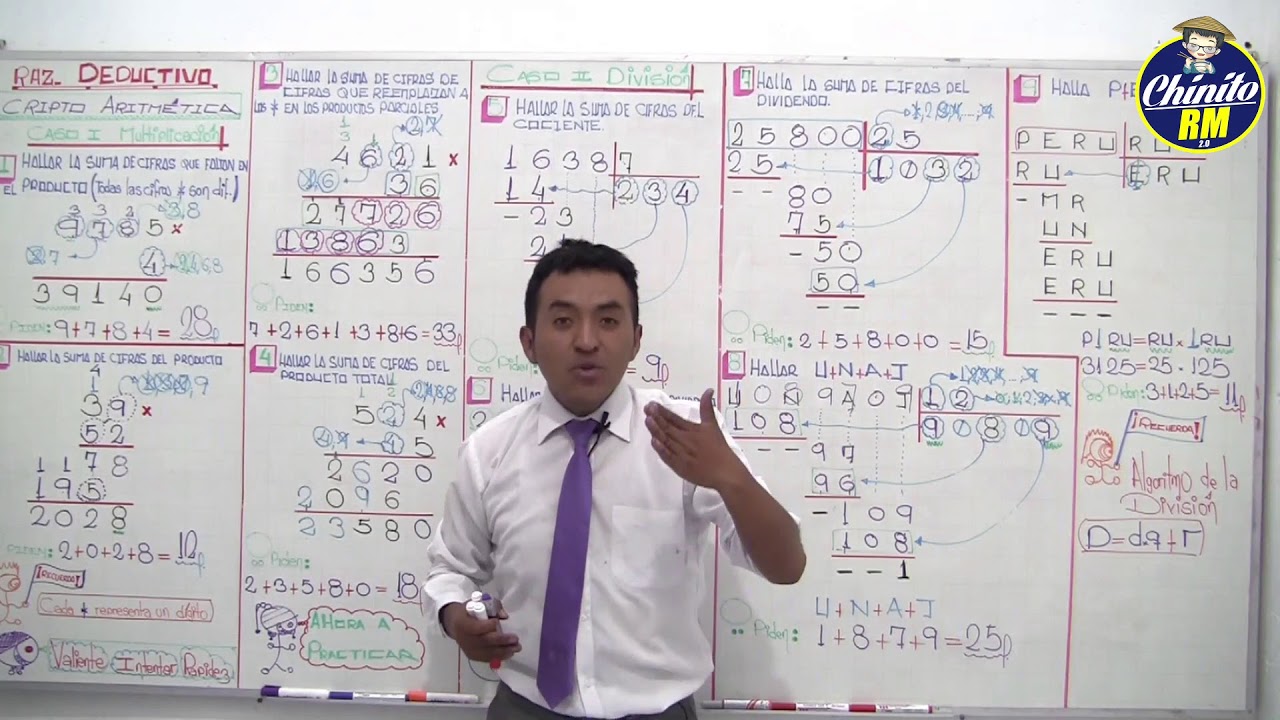 Chinito
RM
2.0
RAZ. DEDUCTIVO
CRIPTO ARITMÉTICA
CASO I Multiplicación
1 HALLAR LA SUMA DE CIFRAS QUE FALTAN EN
EL PRODUCTO (Todas las cifras * son dif.)
3 3 2
9 7 8 5 x
4
3 9 1 4 0
PIDEN: 9+7+8+4=28
HALLAR LA SUMA DE CIFRAS DEL PRODUCTO
4
3 9 x
5 2
1 1 7 8
1 9 5
2 0 2 8
PIDEN: 2+0+2+8=12
¡RECUERDA!
Cada * representa un dígito
Valiente Intentar Rapidez
3 HALLAR LA SUMA DE CIFRAS DE
CIFRAS QUE REEMPLAZAN A
LOS * EN LOS PRODUCTOS PARCIALES
1
3 1
4 6 2 1 x
3 6
2 7 7 2 6
1 3 8 6 3
1 6 6 3 5 6
PIDEN:
7+2+6+1+3+8+6=33
4 HALLAR LA SUMA DE CIFRAS DEL
PRODUCTO TOTAL
1 2
5 2 4 x
4 5
2 6 2 0
2 0 9 6
2 3 5 8 0
Piden:
2+3+5+8+0=18
AHORA A
PRACTICAR
CASO II División
5 HALLAR LA SUMA DE CIFRAS DEL
COCIENTE.
1 6 3 8 7
1 4 2 3 4
- 2 3
2
Piden
9
6 HALLA
7 HALLA LA SUMA DE CIFRAS DEL
DIVIDENDO.
2 5 8 0 0 2 5
2 5 1 0 3 2
- - 8 0
7 5
- 5 0
5 0
- -
Piden: 2+5+8+0+0=15
8 HALLAR U+N+A+J
9 7 0 9 1 2
1 0 8 9 0 8 0 9
- - 9 7
9 6
- 1 0 9
1 0 8
- - 1
U+N+A+J
Piden: 1+8+7+9=25
9 HALLA
P E R U RU
R U E R U
- M R
U N
E R U
E R U
- - -
P1RU=RU x 1RU
3125=25 · 125
Piden: 3+1+2+5=11
¡RECUERDA!
Algoritmo de la
División
D=dq+r